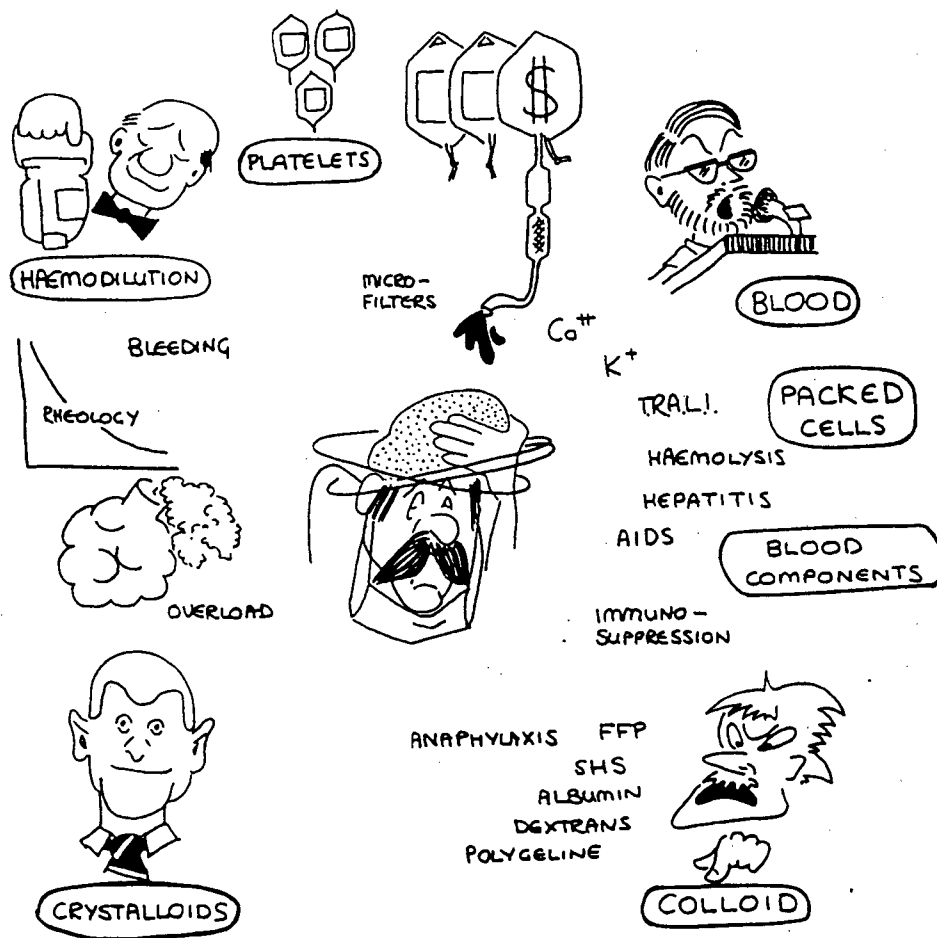 $
PLATELETS
HAEMODILUTION
MICRO-
FILTERS
BLOOD
Ca++
K+
BLEEDING
RHEOLOGY
TRA.L.I.
PACKED
CELLS
HAEMOLYSIS
HEPATITIS
AIDS
BLOOD
COMPONENTS
OVERLOAD
IMMUNO-
SUPPRESSION
ANAPHYLAXIS FFP
SHS
ALBUMIN
DEXTRANS
POLYGELINE
CRYSTALLOIDS
COLLOID